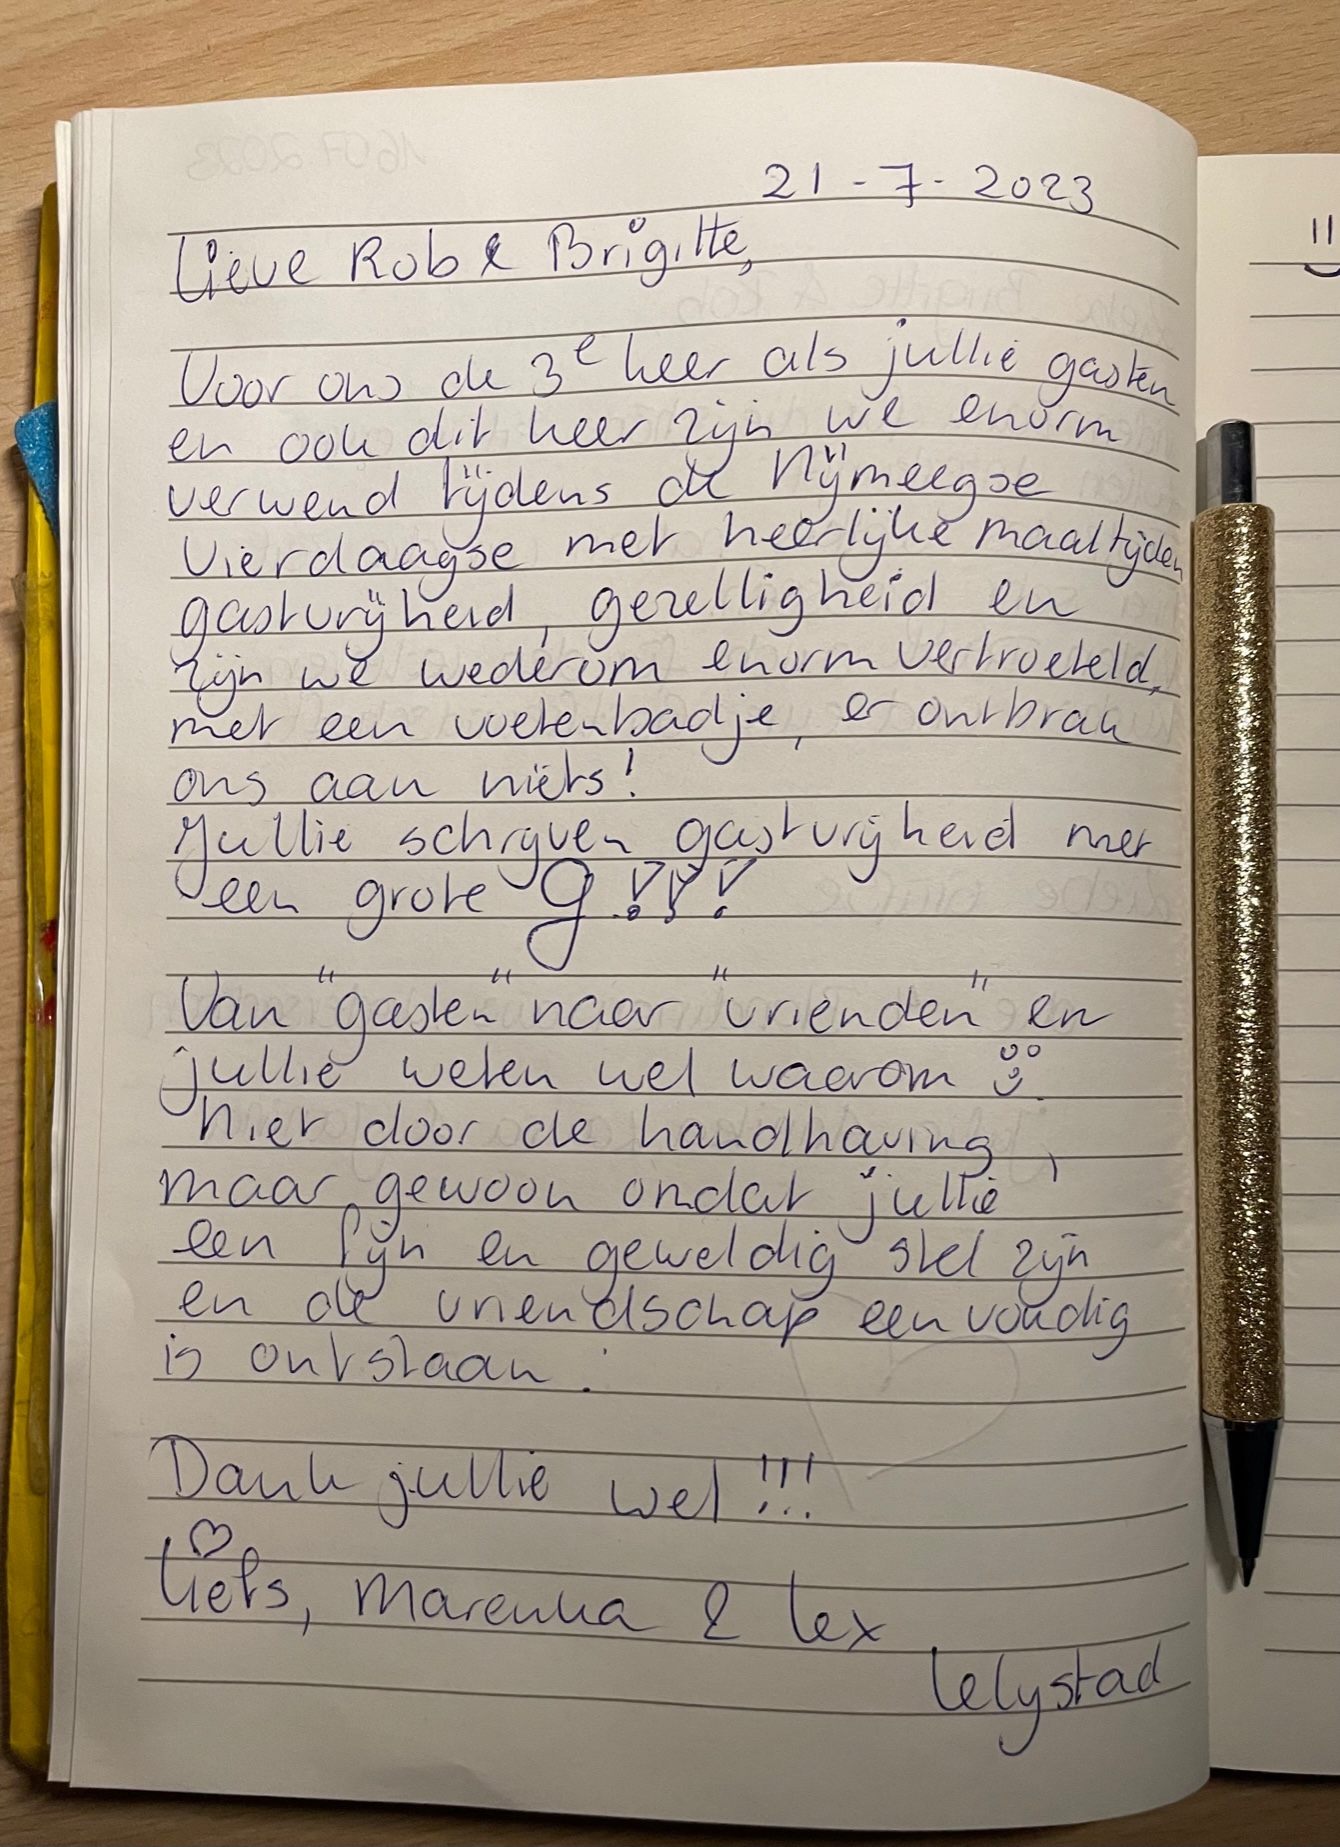 21-7-2023
Lieve Rob & Brigitte,
Voor ons de 3e keer als jullie gasten
en ook dit keer zijn we enorm
verwend tijdens de Nijmeegse
Vierdaagse met heerlijke maaltijden
gastvrijheid, gezelligheid en
zijn we wederom enorm vertroeteld,
met een voetenbadje, er ontbrak
ons aan niets!
Jullie schrijven gastvrijheid met
een grote G!!!
Van "gasten" naar "vrienden" en
jullie weten wel waarom
Niet door de handhaving,
maar gewoon omdat jullie
een fijn en geweldig stel zijn
en de vriendschap eenvoudig
is ontstaan.
Dank jullie wel!!!
Liefs, Marenka & Lex
Lelystad